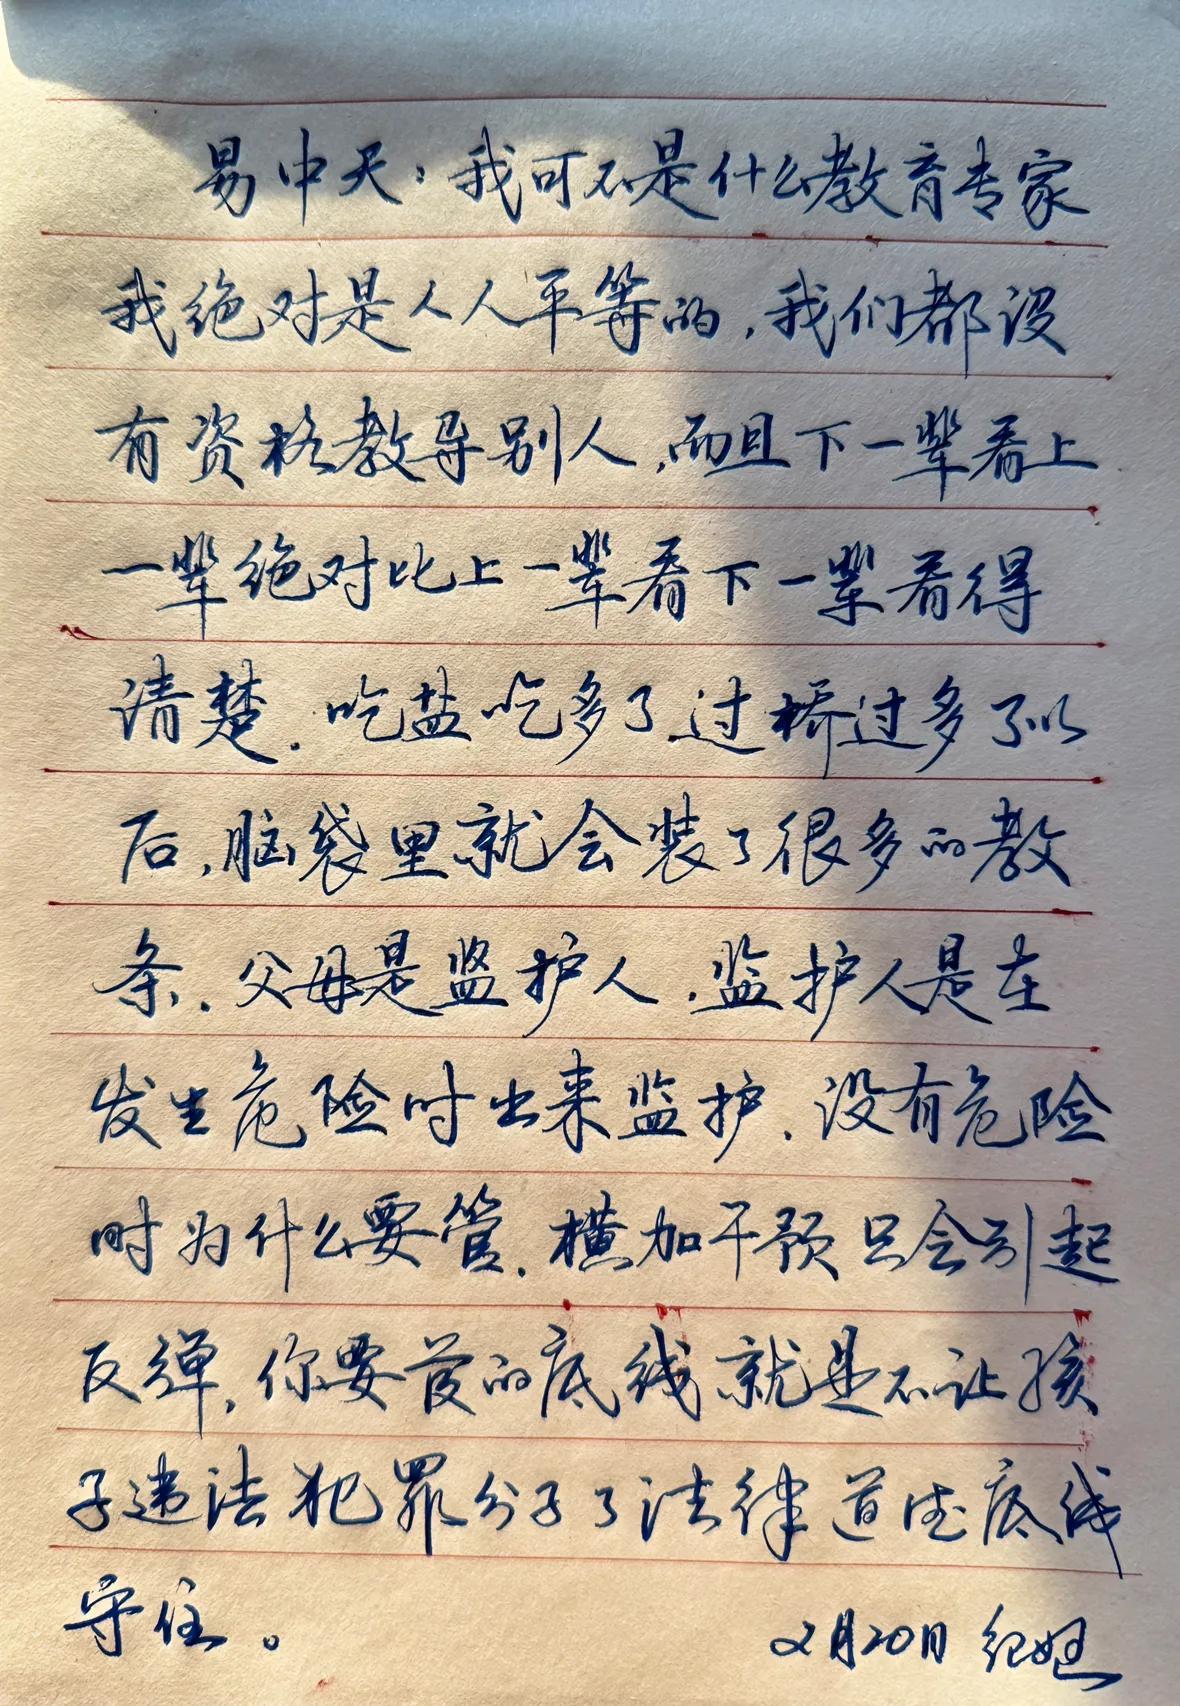 易中天：我可不是什么教育专家
我绝对是人人平等的，我们都没
有资格教导别人，而且下一辈看上
一辈绝对比上一辈看下一辈看得
清楚．吃盐吃多了．过桥过多了以
后，脑袋里就会装了很多的教
条．父母是监护人．监护人是在
发生危险时出来监护．没有危险
时为什么要管．横加干预只会引起
反弹，你要管的底线就是不让孩
子违法犯罪分子了法律道德底线
守住。
2月20日